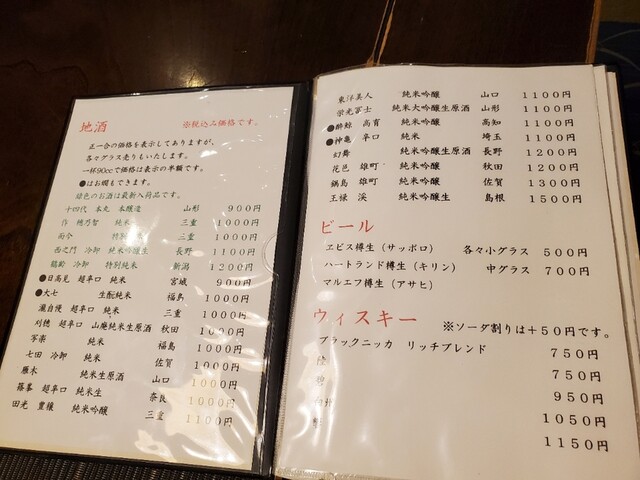 地酒 ※税込み価格です。
正一合の価格を表示してありますが、
各々グラス売りもいたします。
一杯90ccで価格は表示の半額です。
●はお燗もできます。
緑色のお酒は最新入荷品です。
十四代 本丸 本醸造 山形 900円
作 穂乃智 純米 三重 1000円
而今 特別純米 三重 1000円
西之門 冷卸 純米吟醸生 長野 1100円
鶴齢 冷卸 特別純米 新潟 1200円
●日高見 超辛口 純米 宮城 900円
●大七 生酛純米 福島 1000円
瀧自慢 超辛口 純米 三重 1000円
刈穂 超辛口 山廃純米生原酒 秋田 1000円
写楽 純米 福島 1000円
七田 冷卸 純米 佐賀 1000円
雁木 純米生原酒 山口 1000円
篠峯 超辛口 純米生 奈良 1000円
田光 豊穣 純米吟醸 三重 1100円
東洋美人 純米吟醸 山口 1100円
栄光冨士 純米大吟醸生原酒 山形 1100円
●酔鯨 高育 純米吟醸 高知 1100円
●神亀 辛口 純米 埼玉 1100円
幻舞 純米吟醸生原酒 長野 1200円
花邑 雄町 純米吟醸 秋田 1200円
鍋島 雄町 純米吟醸 佐賀 1300円
王祿 渓 純米吟醸生 島根 1500円
ビール
ヱビス樽生（サッポロ） 各々小グラス 500円
ハートランド樽生（キリン） 中グラス 700円
マルエフ樽生（アサヒ）
ウィスキー ※ソーダ割りは＋50円です。
ブラックニッカ リッチブレンド 750円
750円
950円
1050円
1150円